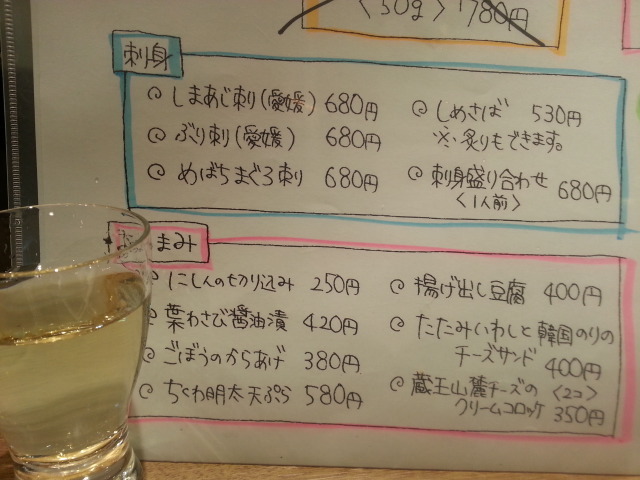 〈50g〉 780円
刺身
しまあじ刺り(愛媛) 680円
ぶり刺(愛媛) 680円
めばちまぐろ刺り 680円
しめさば 530円
※炙りもできます。
刺身盛り合わせ 680円
〈1人前〉
まみ
にしんの切り込み 250円
葉わさび醤油漬 420円
ごぼうのからあげ 380円
ちくわ明太天ぷら 580円
揚げ出し豆腐 400円
たたみいわしと韓国のりの
チーズサンド 400円
蔵王山麓チーズの〈2コ〉
クリームコロッケ 350円